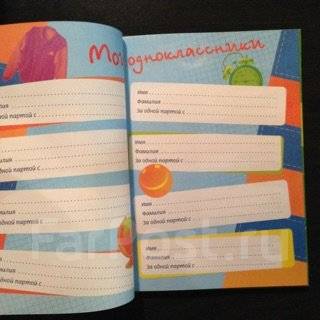 Мои одноклассники
имя
Фамилия
За одной партой с
имя
Фамилия
За одной партой с
имя
Фамилия
За одной партой с
имя
Фамилия
За одной партой с
Фамилия
За одной партой с
Фамилия
За одной партой с
Фамилия
За одной партой с
Фамилия
За одной партой с
FarPost.ru